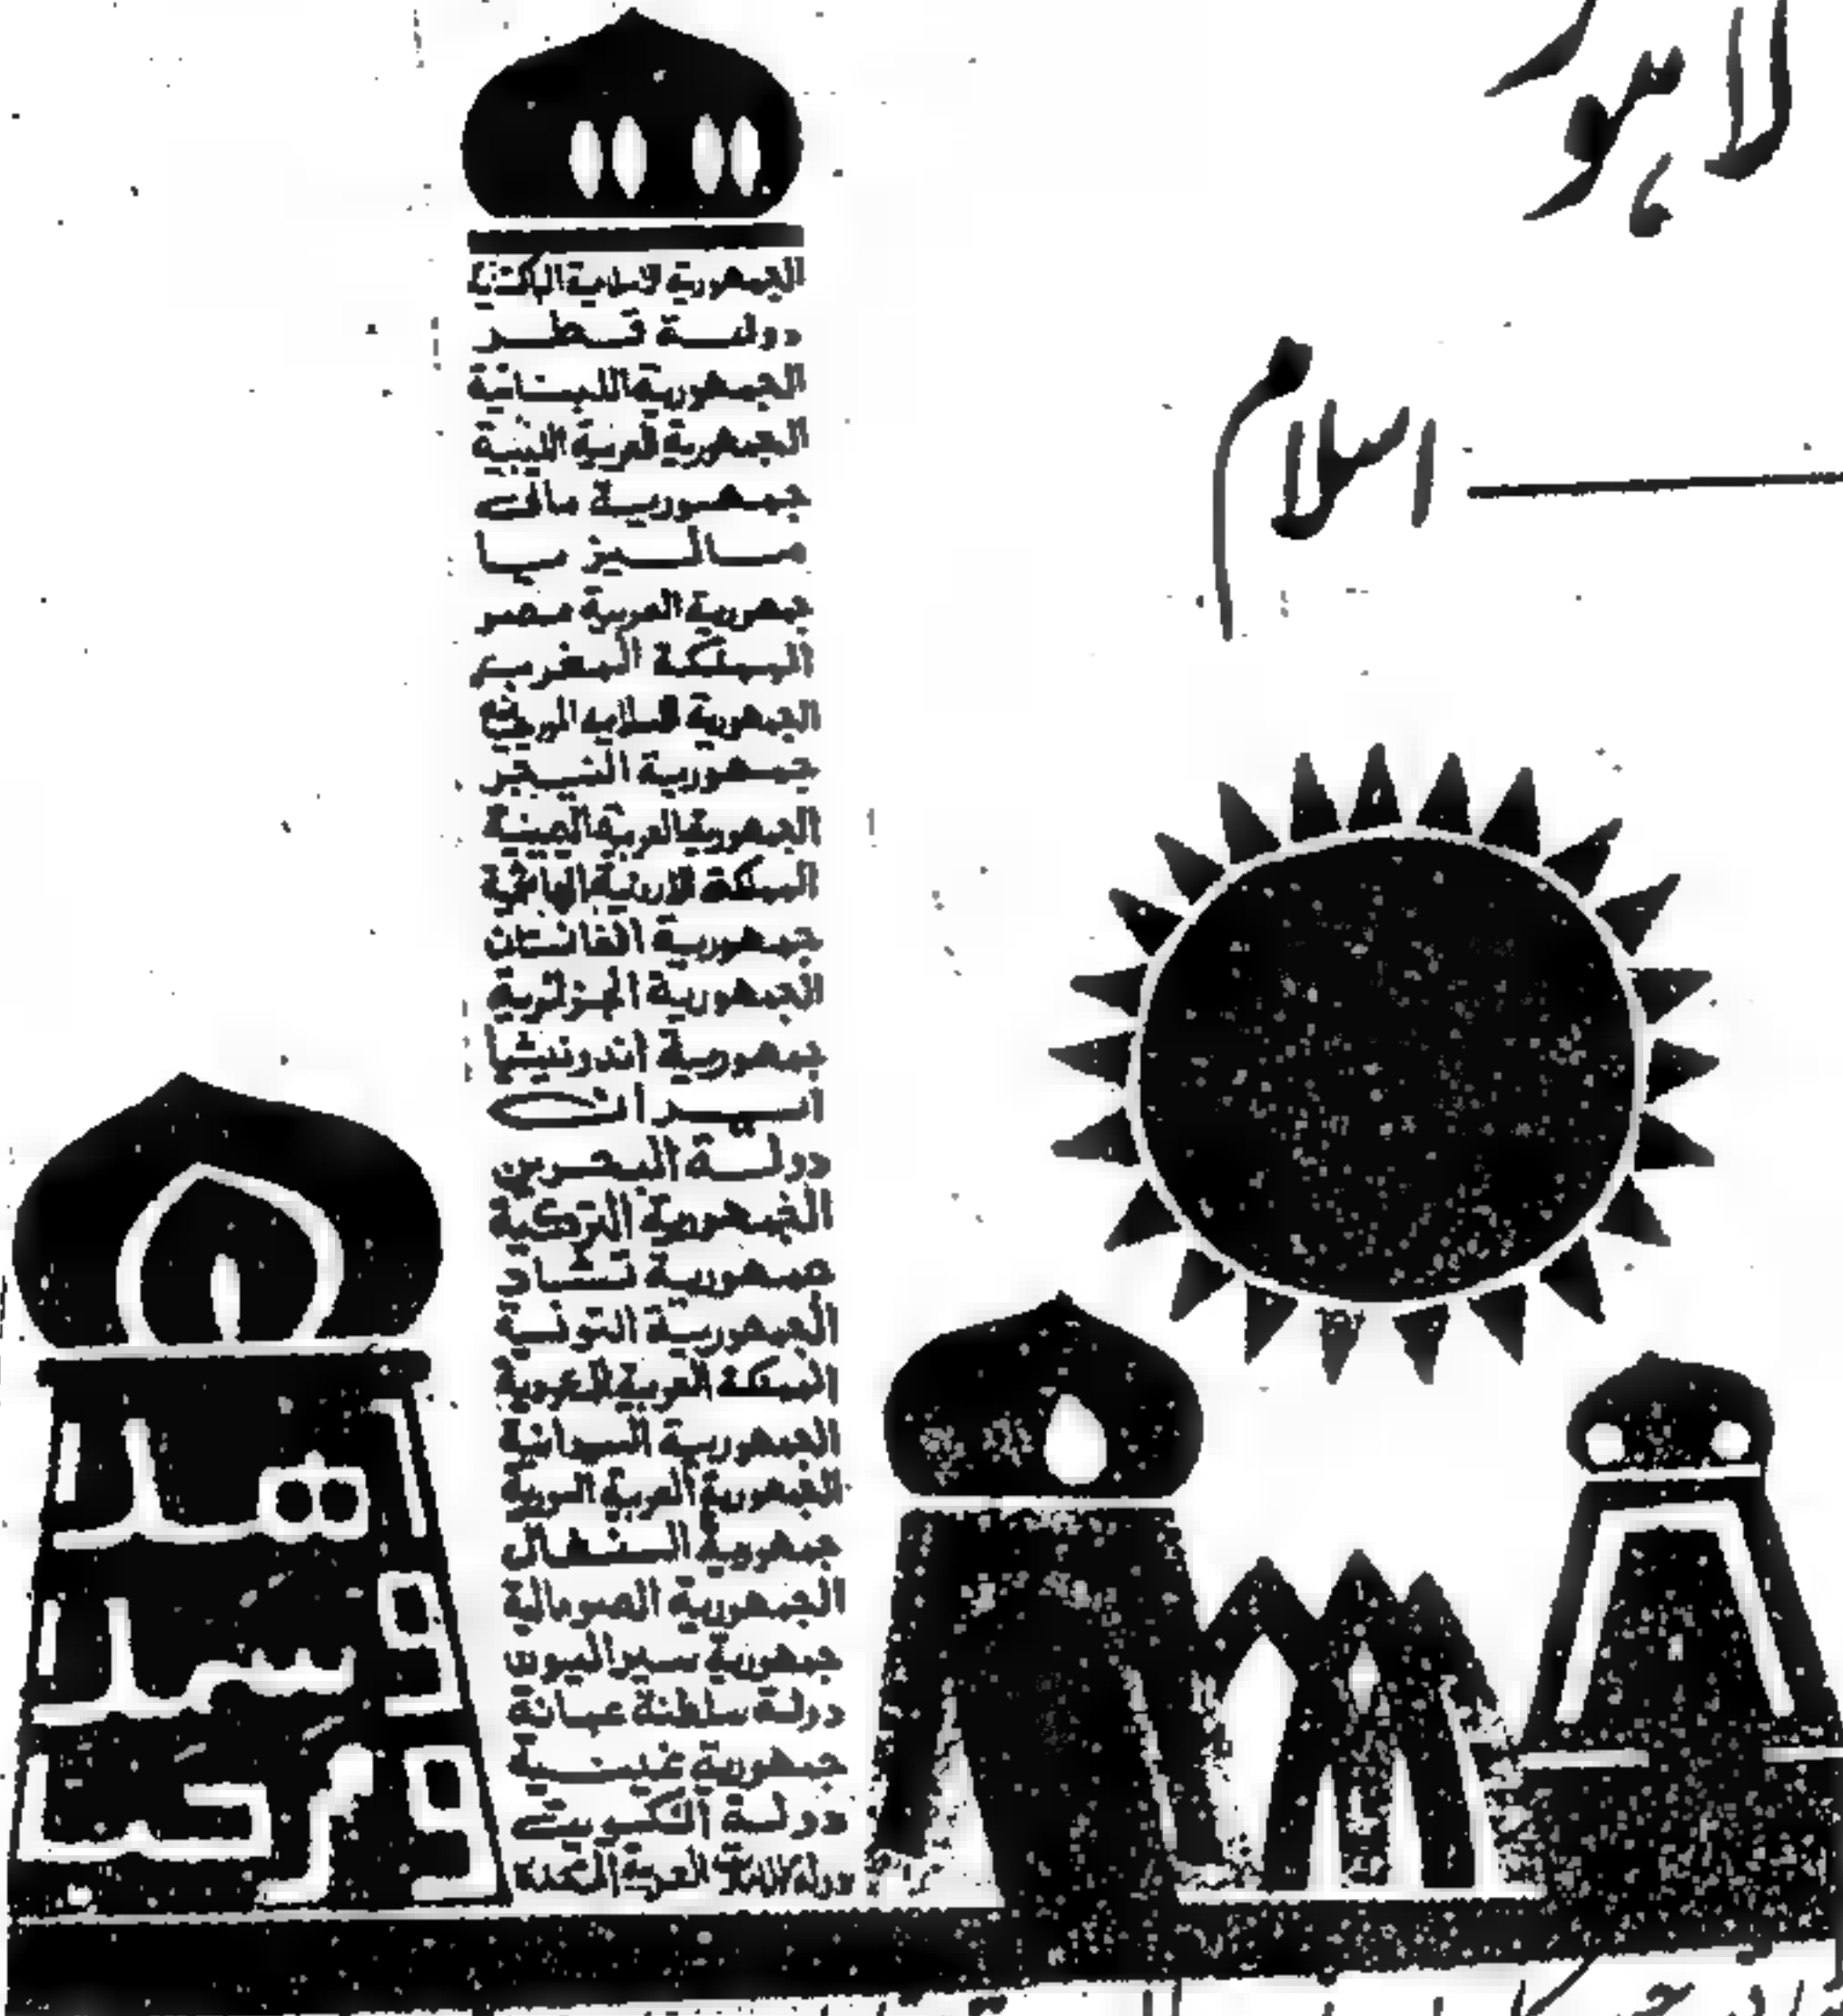 لاہور
اسلام
الجمهورية الاسلامية الباكستانية
دولة قطر
الجمهورية اللبنانية
الجمهورية العربية الليبية
جمهورية مالى
ماليزيا
جمهورية العربية مصر
المملكة المغرب
الجمهورية الاسلامية الموريتانية
جمهورية النيجر
الجمهورية العربية اليمنية
المملكة الاردنية الهاشمية
جمهورية افغانستان
الجمهورية الجزائرية
جمهورية اندونيشيا
ايران
دولة البحرين
الجمهورية التركية
جمهورية تشاد
الجمهورية التونسية
المملكة العربية السعودية
الجمهورية السودانية
الجمهورية العربية السورية
جمهورية السنغال
الجمهورية الصومالية
جمهورية سيراليون
دولة سلطنة عمانة
جمهورية غينية
دولة الكويت
دولة الامارات العربية المتحدة